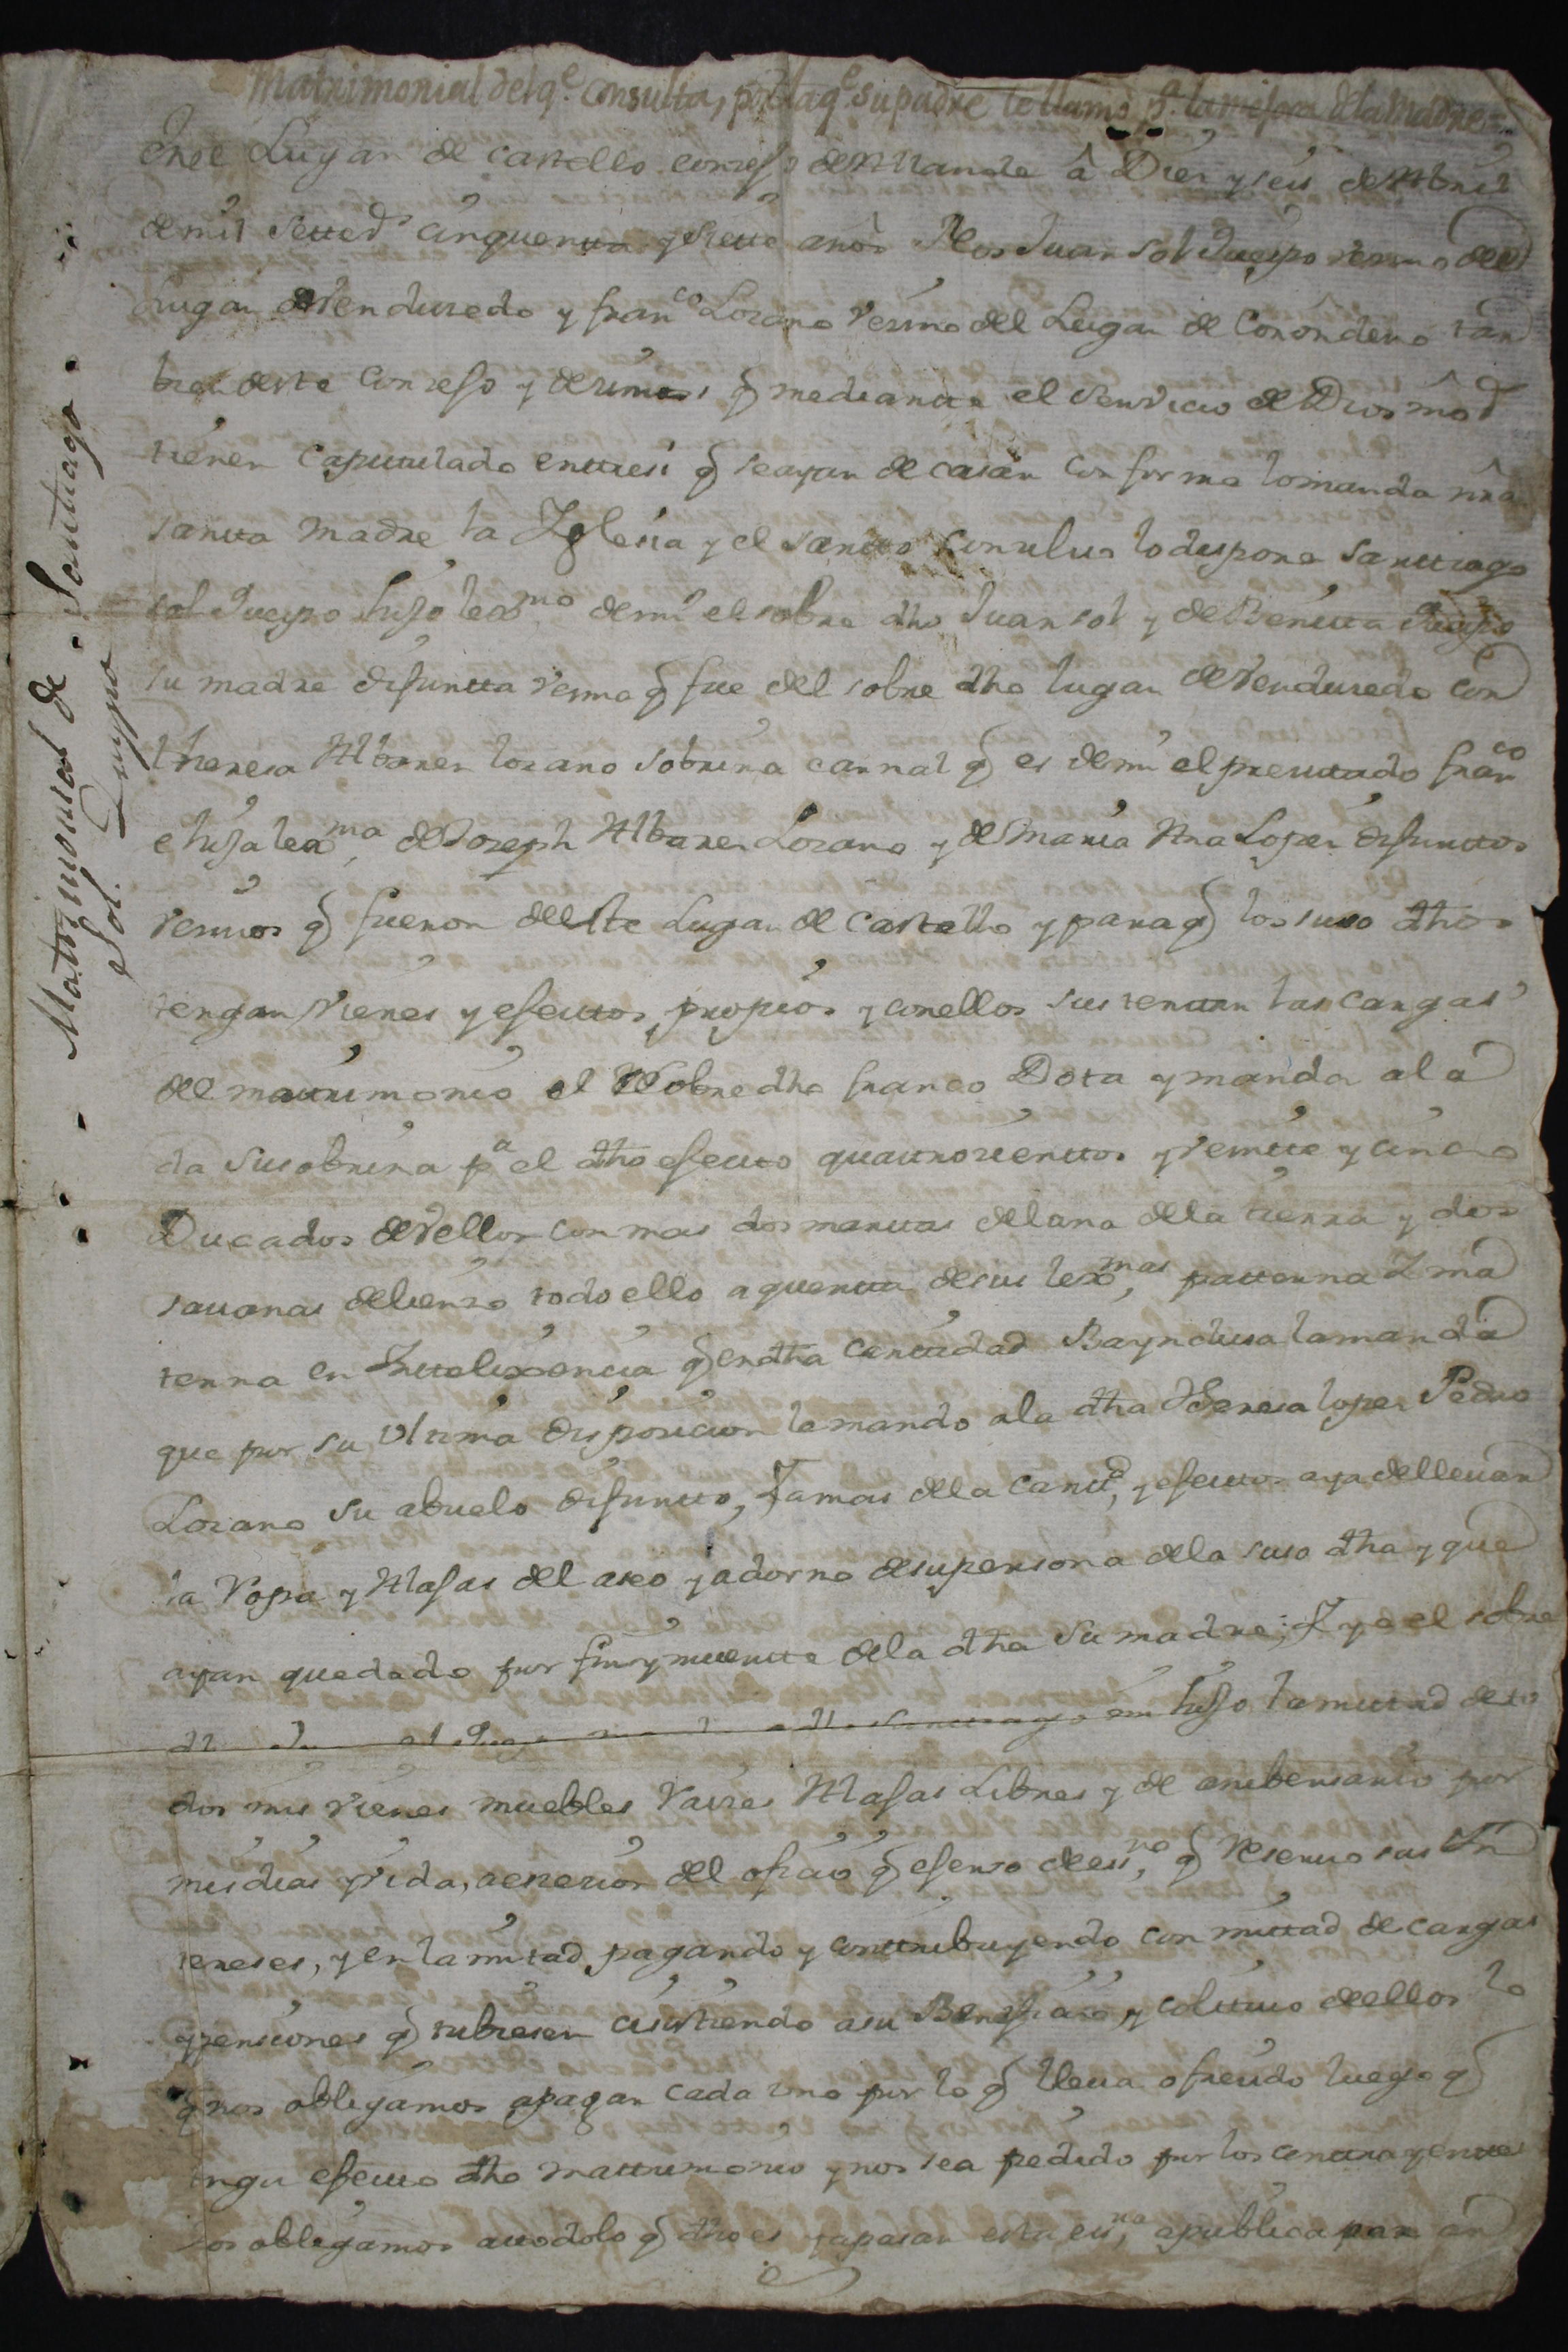 Matrimonial del q.e consulta, por la q.e su padre le llamó p.a la mejora de la Madre =
Matrimonial de Santiago
Sol. Queypo
En el Lugar de Castello conzejo de Allande â Diez y seis de Abril
de mil sette d.s cinquentta y siette anôs Nos Juan Sol Queypo vezino del
Lugar de Venduredo y fran.co Lozano Vezino del Lugar de
bien deste Conzejo y dezimos q mediantte el servicio de Dios
tienen Capittulado enttresi q se ayan de casar conforme lo manda nrâ
santta Madre la Iglesia y el santto Conzilio lo dispone Santtiago
sol Queypo hijo lexmo de mi el sobre dho Juan sol y de Benitta Queypo
su madre difuntta vezina q fue del sobre dho lugar de Venduredo con
theresa Albarez lozano sobrina carnal q es de mi el preCittado fran.co
e hija lexma, de Joseph Albarez Lozano y de Maria Lopez difunttos
vezinos q fueron deste Lugar de Castello y para q los suso dhos
tengan Vienes y efecttos propios y con ellos sustentten las cargas
del mattrimonio el sobre dho franco Dota y manda a la
da su sobrina pa el dho efectto quattrozienttos y veintte y cinco
Ducados de Vellon con mas dos manttas de lana de la tierra y dos
sauanas de lienzo todo ello a quentta de sus lexmas, patterna I ma
terna en Intteligencia q en dha canttidad Ba ynclusa la manda
que por su Vltima disposicion le mando a la dha theresa lopez Pedro
Lozano su abuelo difuntto, I a mas de la Cantt.d, y efecttos aya de lleuar
la Ropa y Alajas del aseo y adorno de su persona de la suso dha y que
ayan quedado por fin y muertte de la dha su madre; I yo el sobre
hijo la mittad de to
dos mis vienes muebles Raizes Alajas Libres y de anibersario por
mis dias y vida, a exezion del ofizio q ejerzo de ess.no, q Reseruo sus In
tereses, y en la mitad pagando y conttribuyendo con mittad de cargas
y pensiones q tubiesen asistiendo a su Benefizio y coltiuo de ellos lo
q nos obligamos a pagar cada uno por lo q lleua ofrezido luego q
tenga efectto dho mattrimonio y nos sea pedido por los conttrayenttes
nos obligamos a todo lo q dho es y a pasar esta ess.ra, a publica